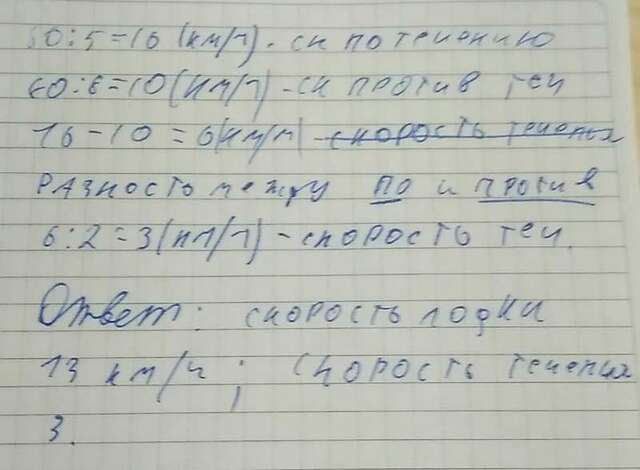 80:5=16 (км/ч). ск по течению
60:6=10(км/ч)-ск против теч
16-10=6(км/ч) скорость теченья
разность между по и против
6:2=3(км/ч)-скорость теч.
Ответ: скорость лодки
13 км/ч; скорость теченья
3.